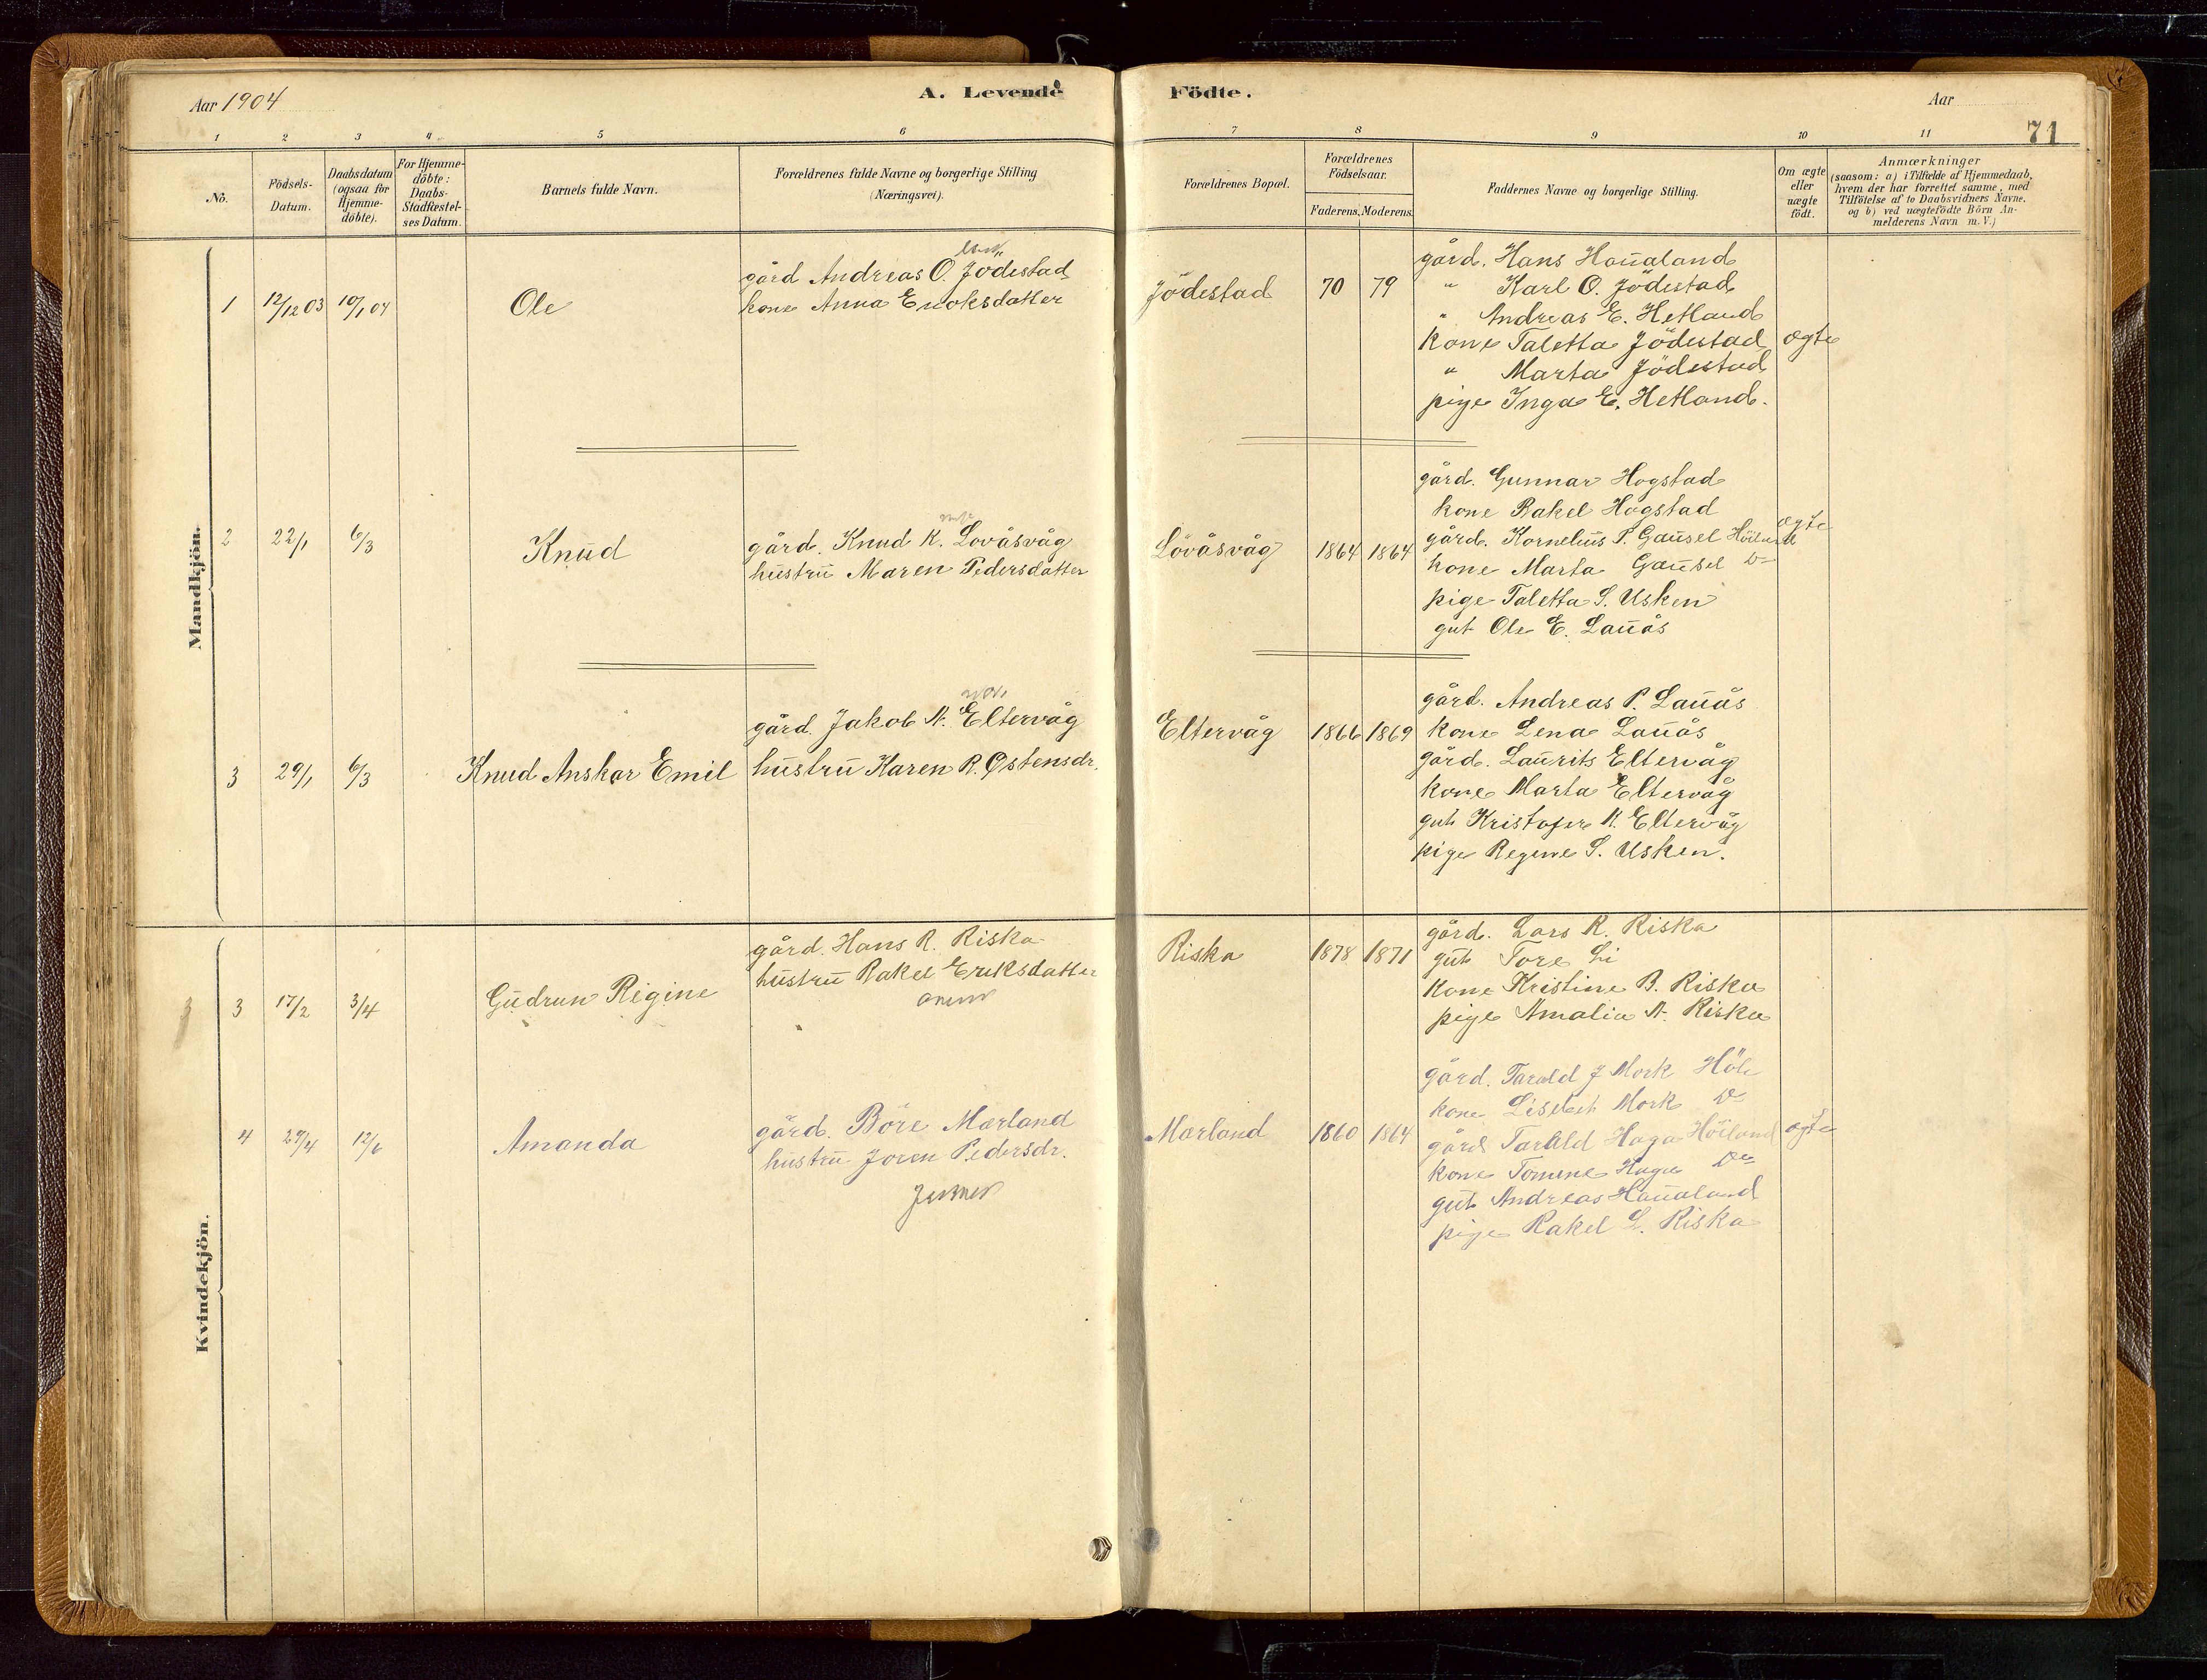 Aar 1904
A. Levende Födte.
Aar
71
1 2 3 4 5 6 7 8 9 10 11
No.
Födsels-Datum.
Daabsdatum (ogsaa for Hjemme-döbte).
For Hjemme-döbte: Daabs-Stadfæstel-ses Datum.
Barnets fulde Navn.
Forældrenes fulde Navne og borgerlige Stilling
(Næringsvei).
Forældrenes Bopæl.
Forældrenes Födselsaar.
Faderens. Moderens.
Faddernes Navne og borgerlige Stilling.
Om ægte eller uægte födt.
Anmærkninger
(saasom: a) i Tilfælde af Hjemmedaab,
hvem der har forrettet samme, med
Tilföielse af to Daabsvidners Navne.
og b) ved uægtefödte Börn An-
melderens Navn m.V.)
Mandkjön.
1 12/12 03 10/1 04 Ole
gård Andreas O. Jödestad
kone Anna Enoksdatter
Jödestad 70 79
gård. Hans Haualand
" Karl O. Jödestad
" Andreas E. Hetland
kone Taletta Jödestad ægte
" Marta Jödestad
pige Inga E. Hetland.
2 22/1 6/3 Knud
gård. Knud K. Lovåsvåg
hustru Maren Pedersdatter
Lövåsvåg 1864 1864
gård. Gunnar Hogstad
kone Rakel Hogstad
gård. Kornelius P. Gausel Höiland ægte
kone Marta Gausel Do
pige Taletta S. Usken
gut Ole E. Lauås
3 29/1 6/3 Knud Anskar Emil
gård. Jakob N. Eltervåg
hustru Karen R. Østensdr.
Eltervåg 1866 1869
gård. Andreas P. Lauås
kone Lena Lauås
gård. Laurits Eltervåg
kone Marta Eltervåg
gut Kristofer K. Eltervåg
pige Regine S. Usken.
Kvindekjön.
3 3 17/2 3/4 Gudrun Rigine
gård. Hans R. Riska
hustru Rakel Eriksdatter
Riska 1878 1871
gård. Lars R. Riska
gut Tore Li
kone Kristine B. Riska
pige Amalia A. Riska
4 29/4 12/6 Amanda
gård. Böre Mærland
hustru Joren Pedersdr.
Mærland 1860 1864
gård. Tarald J Mork Höle
kone Lisebet Mork Do
gård Tarald Haga Höiland ægte
kone Tomine Haga Do
gut Andreas Haualand
pige Rakel L. Riska